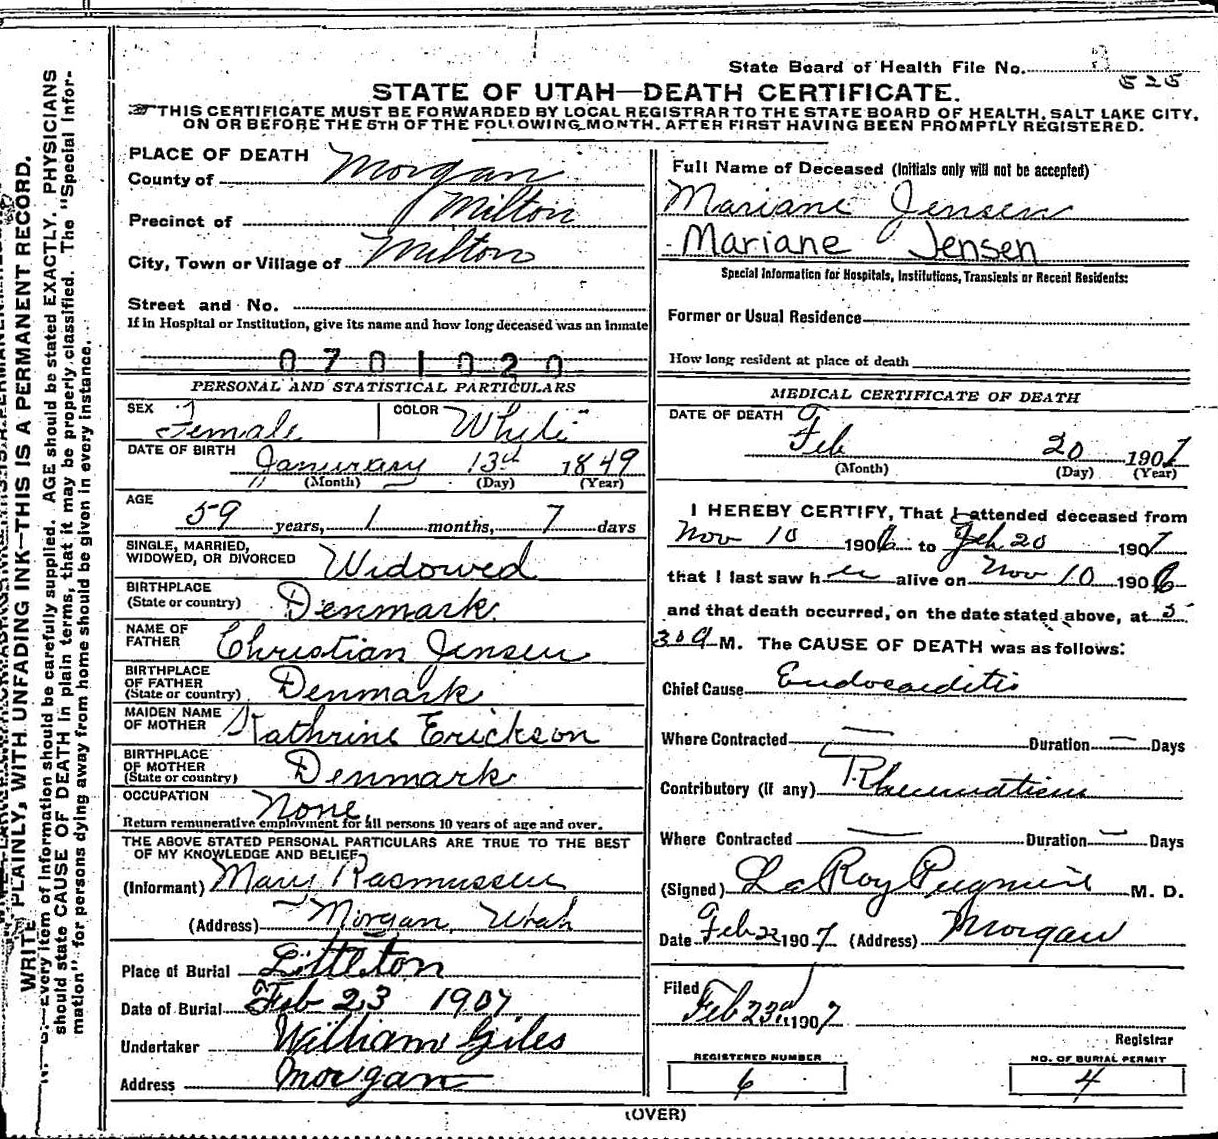 State Board of Health File No. 3
525
STATE OF UTAH—DEATH CERTIFICATE.
THIS CERTIFICATE MUST BE FORWARDED BY LOCAL REGISTRAR TO THE STATE BOARD OF HEALTH, SALT LAKE CITY,
ON OR BEFORE THE 5TH OF THE FOLLOWING MONTH, AFTER FIRST HAVING BEEN PROMPTLY REGISTERED.
PLACE OF DEATH
County of Morgan
Precinct of Milton
City, Town or Village of Milton
Street and No.
If in Hospital or Institution, give its name and how long deceased was an Inmate
0701020
PERSONAL AND STATISTICAL PARTICULARS
SEX Female COLOR White
DATE OF BIRTH January 13th 1849
(Month) (Day) (Year)
AGE 59 years, 1 months, 7 days
SINGLE, MARRIED,
WIDOWED, OR DIVORCED Widowed
BIRTHPLACE
(State or country) Denmark
NAME OF
FATHER Christian Jensen
BIRTHPLACE
OF FATHER
(State or country) Denmark
MAIDEN NAME
OF MOTHER Kathrine Erickson
BIRTHPLACE
OF MOTHER
(State or country) Denmark
OCCUPATION None
Return remunerative employment for all persons 10 years of age and over.
THE ABOVE STATED PERSONAL PARTICULARS ARE TRUE TO THE BEST
OF MY KNOWLEDGE AND BELIEF
(Informant) Mary Rasmussen
(Address) Morgan, Utah
Place of Burial Littleton
Date of Burial Feb 23 1907
Undertaker William Giles
Address Morgan
Full Name of Deceased (Initials only will not be accepted)
Mariane Jensen
Mariane Jensen
Special Information for Hospitals, Institutions, Transients or Recent Residents:
Former or Usual Residence
How long resident at place of death
MEDICAL CERTIFICATE OF DEATH
DATE OF DEATH
Feb 20 1907
(Month) (Day) (Year)
I HEREBY CERTIFY, That I attended deceased from
Nov 10 1906 to Feb. 20 1907
that I last saw her alive on Nov 10 1906
and that death occurred, on the date stated above, at 5
30 a M. The CAUSE OF DEATH was as follows:
Chief Cause Endocarditis
Where Contracted — Duration — Days
Contributory (if any) Rheumatism
Where Contracted — Duration — Days
(Signed) LeRoy Pugmire M. D.
Date Feb 22 1907 (Address) Morgan
Filed
Feb 23rd 1907
Registrar
REGISTERED NUMBER
6
NO. OF BURIAL PERMIT
4
(OVER)
WRITE PLAINLY, WITH UNFADING INK—THIS IS A PERMANENT RECORD.
Every item of information should be carefully supplied. AGE should be stated EXACTLY. PHYSICIANS
should state CAUSE OF DEATH in plain terms, that it may be properly classified. The "Special Infor-
mation" for persons dying away from home should be given in every instance.